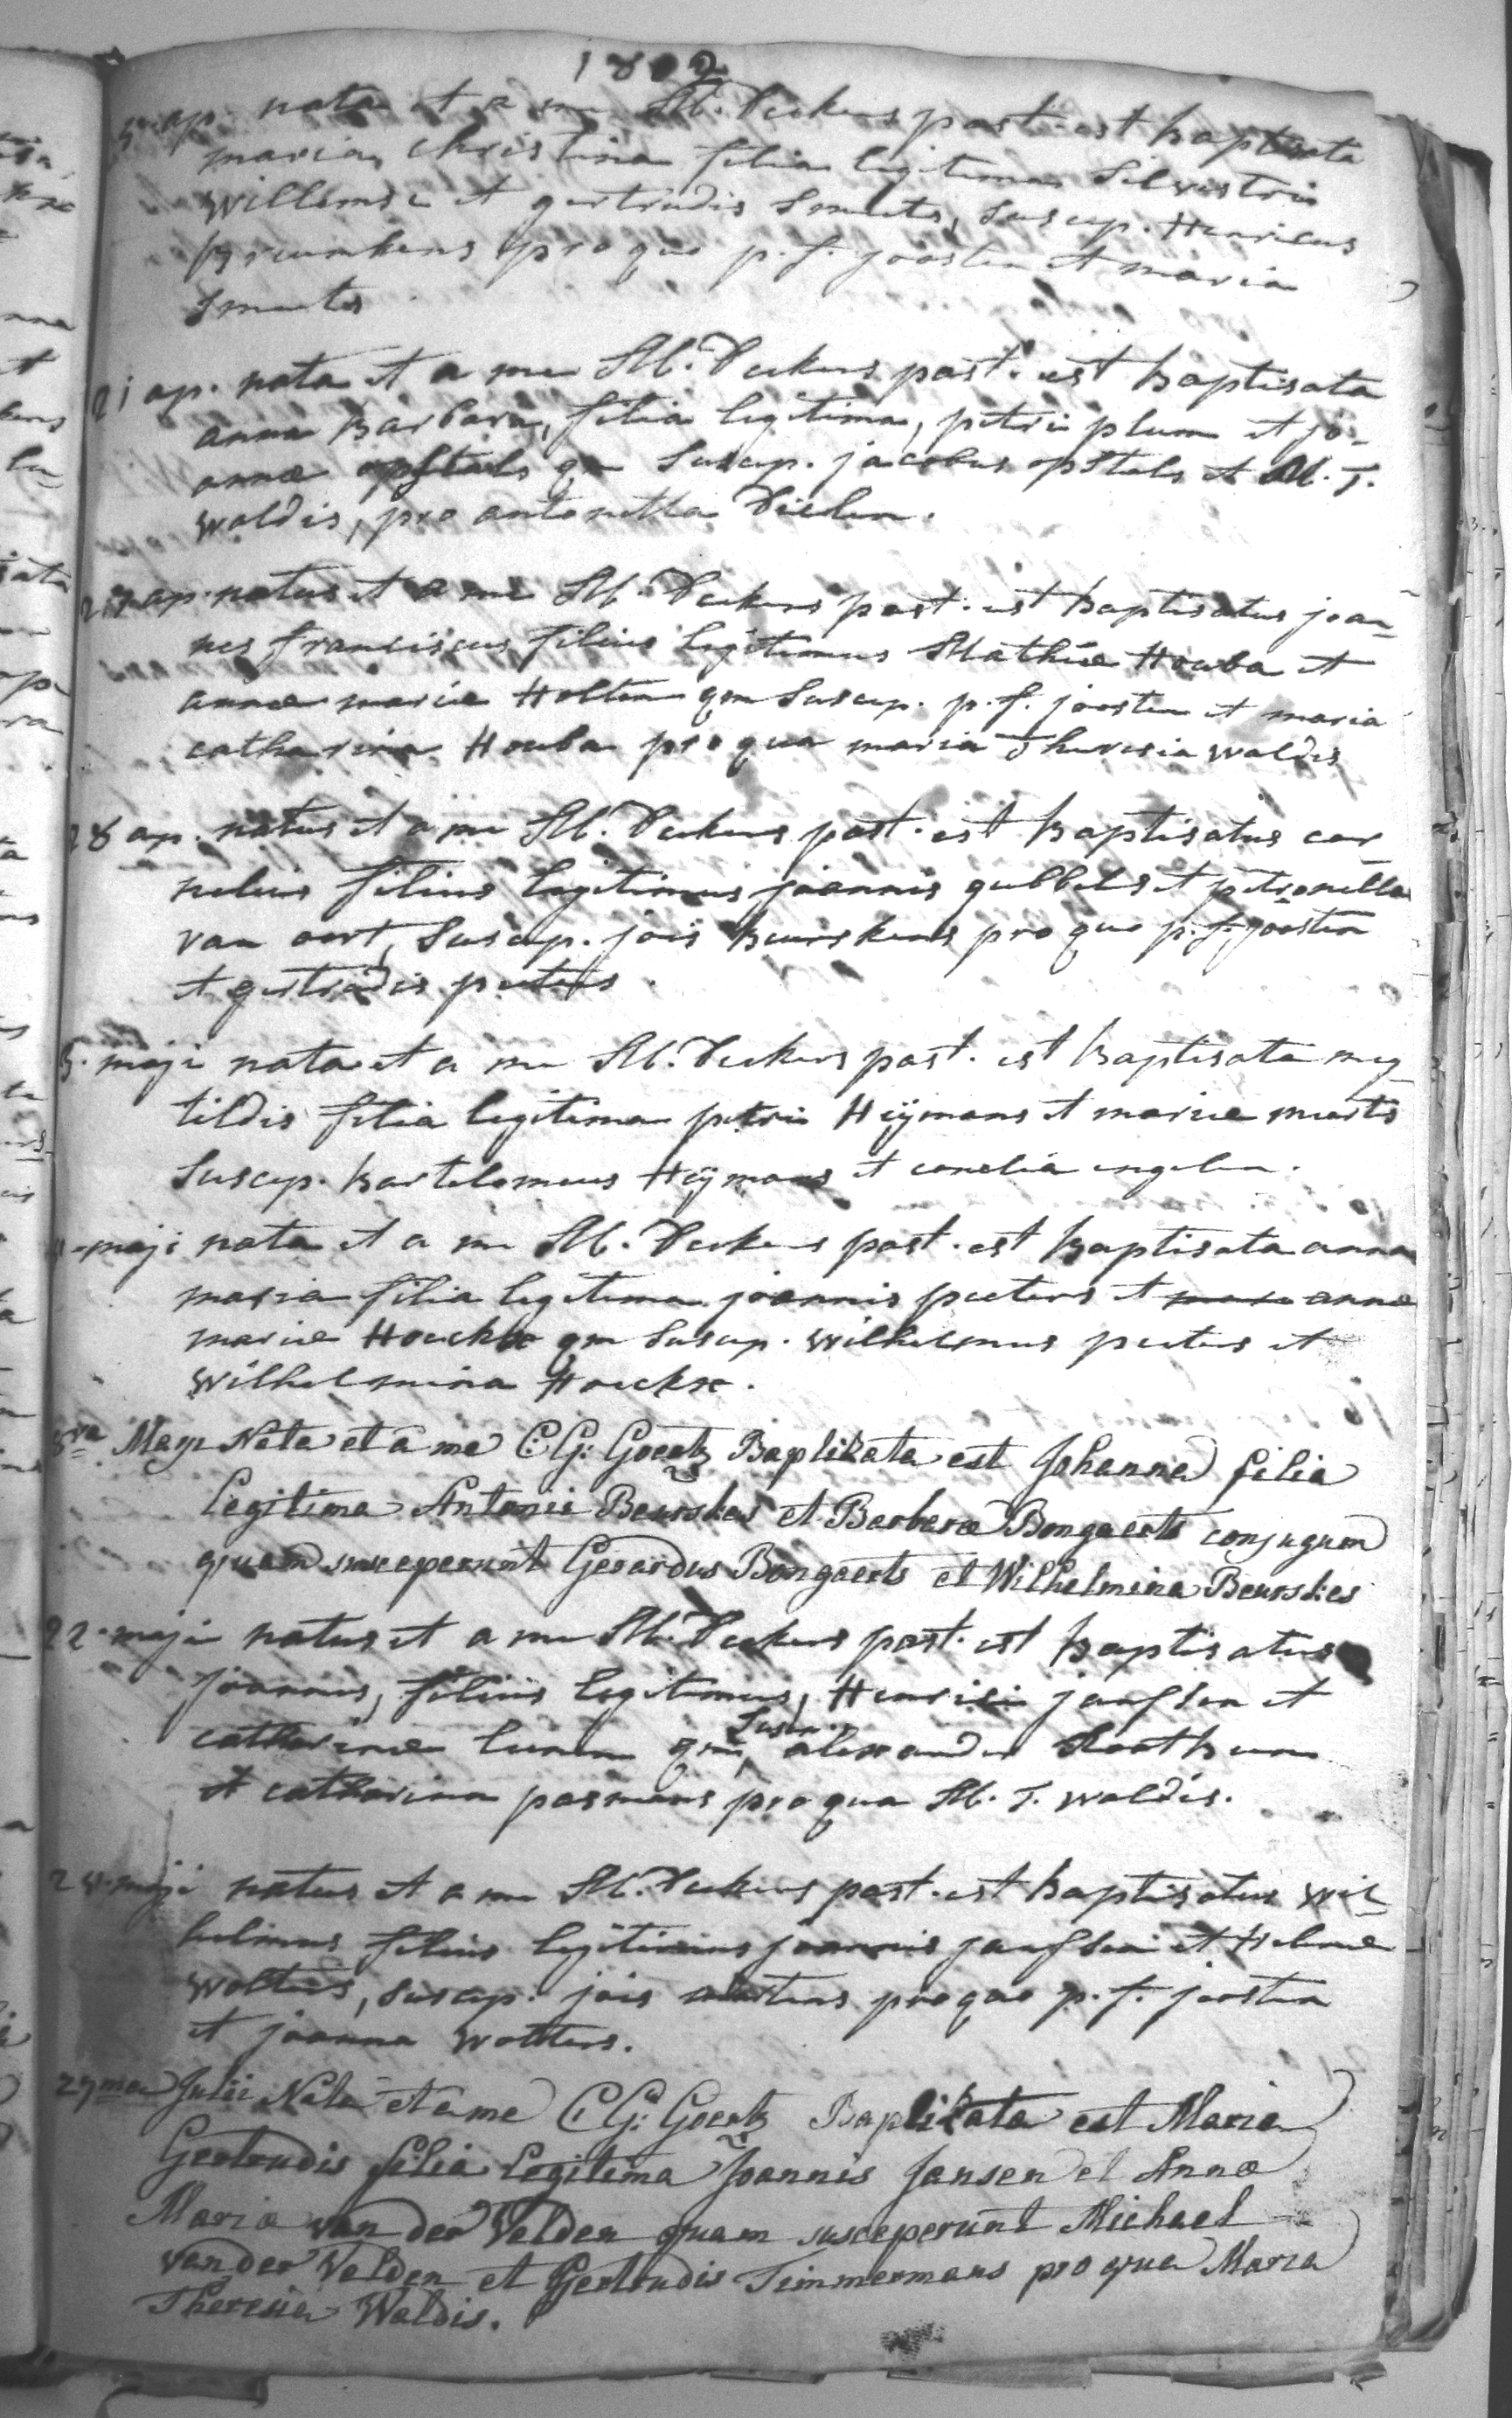 1802
5 ap. nata et a me M. Deckers past. est baptisata
maria christina filia legitima Silvestri
Willemse et gertrudis Smeets, Suscep. Henricus
pro quo p. f. joosten et maria
Smeets
21 ap. nata et a me M. Deckers past. est baptisata
anna barbara, filia legitima, petri plum et jo-
annæ opstals qm Suscep. jacobus opstals et M. T.
Waldis, pro antonetta Dielen.
27 ap. natus et a me M. Deckers past. est baptisatus joan-
nes franciscus filius legitimus Mathiæ Houba et
annæ mariæ Holten qm Suscep. p. f. joosten et maria
catharina Houba pro qua maria Theresia Waldis
28 ap. natus et a me M. Deckers past. est baptisatus cor-
nelius filius legitimus joannis gubbels et petronella
van oort, Suscep. jois beurskens pro quo p. f. joosten
et gertrudis peeters
5. maji nata et a me M. Deckers past. est baptisata meg-
tildis filia legitima petri Hijmans et mariæ
Suscep. bartolomeus Hijmans et conelia engelen.
maji nata et a me M. Deckers past. est baptisata anna
maria filia legitima joannis peeters et annæ
mariæ Houckx qm Suscep. Wilhelmus peeters et
Wilhelmina Houckx.
Maji Nata et a me C: G: Goertz Baptizata est Johanna filia
Legitima Antonii Beurskes et Barberæ Bongaerts conjugum
quam susceperunt Gerardus Bongaerts et Wilhelmina Beurskes
22. maji natus et a me M. Deckers past. est baptisatus
joannes, filiis legitimus, Henrici janssen et
catharinæ qm Suscep. alexander
et catharina pasmans pro qua M. T. Waldis.
24. maji natus et a me M. Deckers past. est baptisatus wil-
helmus filius legitimus joannis janssen et Helenæ
Wolters, Suscep. jois pro quo p. f. joosten
et joanna Wolters.
27ma Julii Nata et a me C: G: Goertz Baptizata est Maria
Gertrudis filia Legitima Joannis Jansen et Annæ
Maria van der Velden quam susceperunt Michael
van der Velden et Gertrudis Timmermans pro qua Maria
Theresia Waldis.